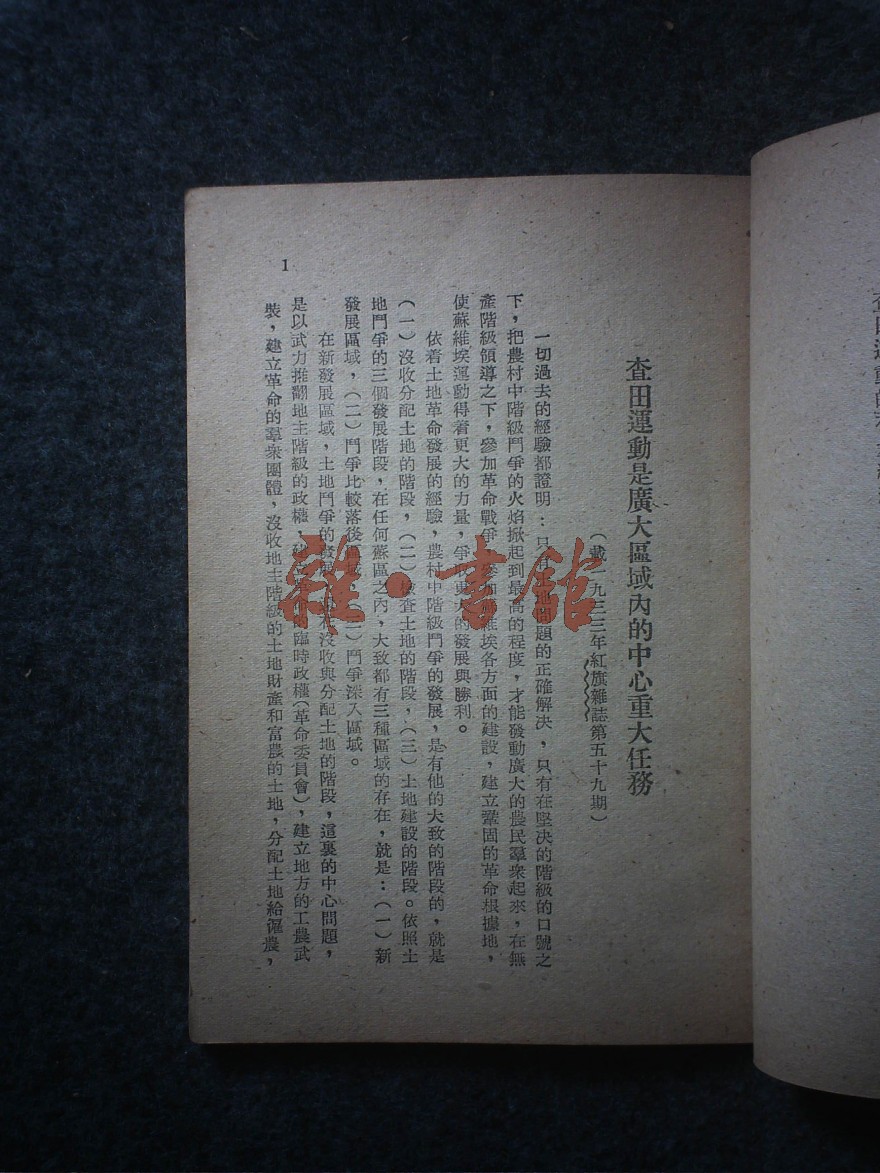 查田運動是廣大區域內的中心重大任務
（載一九三三年紅旗雜誌第五十九期）
一切過去的經驗都證明：只有土地問題的正確解決，只有在堅決的階級的口號之
下，把農村中階級鬥爭的火焰掀起到最高的程度，才能發動廣大的農民羣衆起來，在無
產階級領導之下，參加革命戰爭，參加蘇維埃各方面的建設，建立鞏固的革命根據地，
使蘇維埃運動得着更大的力量，爭取更大的發展與勝利。
依着土地革命發展的經驗，農村中階級鬥爭的發展，是有他的大致的階段的，就是
（一）沒收分配土地的階段，（二）檢查土地的階段，（三）土地建設的階段。依照土
地鬥爭的三個發展階段，在任何蘇區之內，大致都有三種區域的存在，就是：（一）新
發展區域，（二）鬥爭比較落後區域，（三）鬥爭深入區域。
在新發展區域，土地鬥爭的發展 沒收與分配土地的階段，這裏的中心問題，
是以武力推翻地主階級的政權，建 臨時政權（革命委員會），建立地方的工農武
裝，建立革命的羣衆團體，沒收地主階級的土地財產和富農的土地，分配土地給僱農，
1
雜·書館
查田運動的